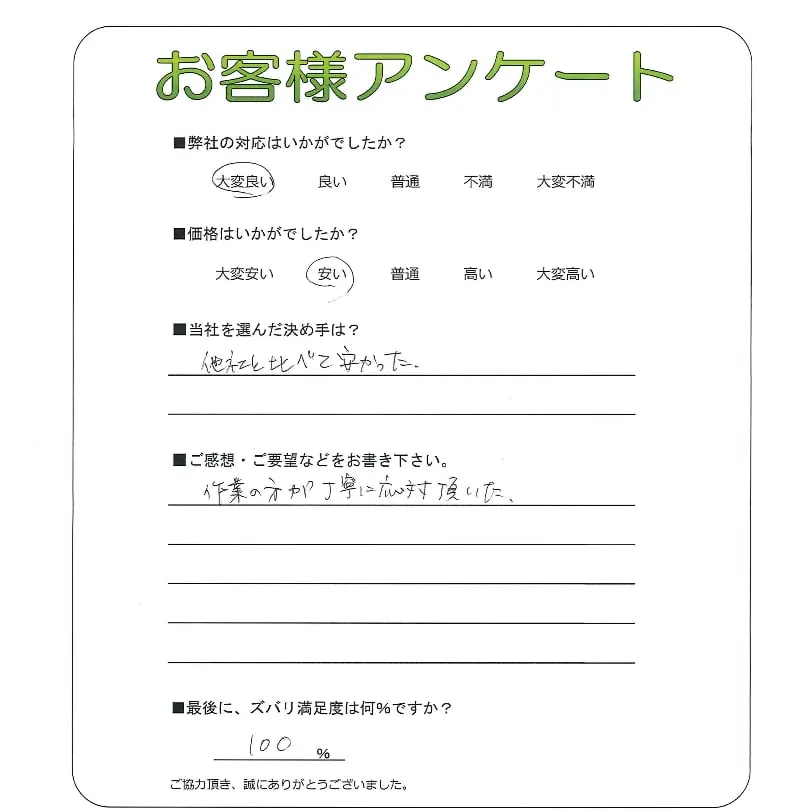 お客様アンケート
■弊社の対応はいかがでしたか？
大変良い 良い 普通 不満 大変不満
■価格はいかがでしたか？
大変安い 安い 普通 高い 大変高い
■当社を選んだ決め手は？
他社と比べて安かった.
■ご感想・ご要望などをお書き下さい。
作業の方が丁寧に応対頂いた、
■最後に、ズバリ満足度は何％ですか？
100 ％
ご協力頂き、誠にありがとうございました。